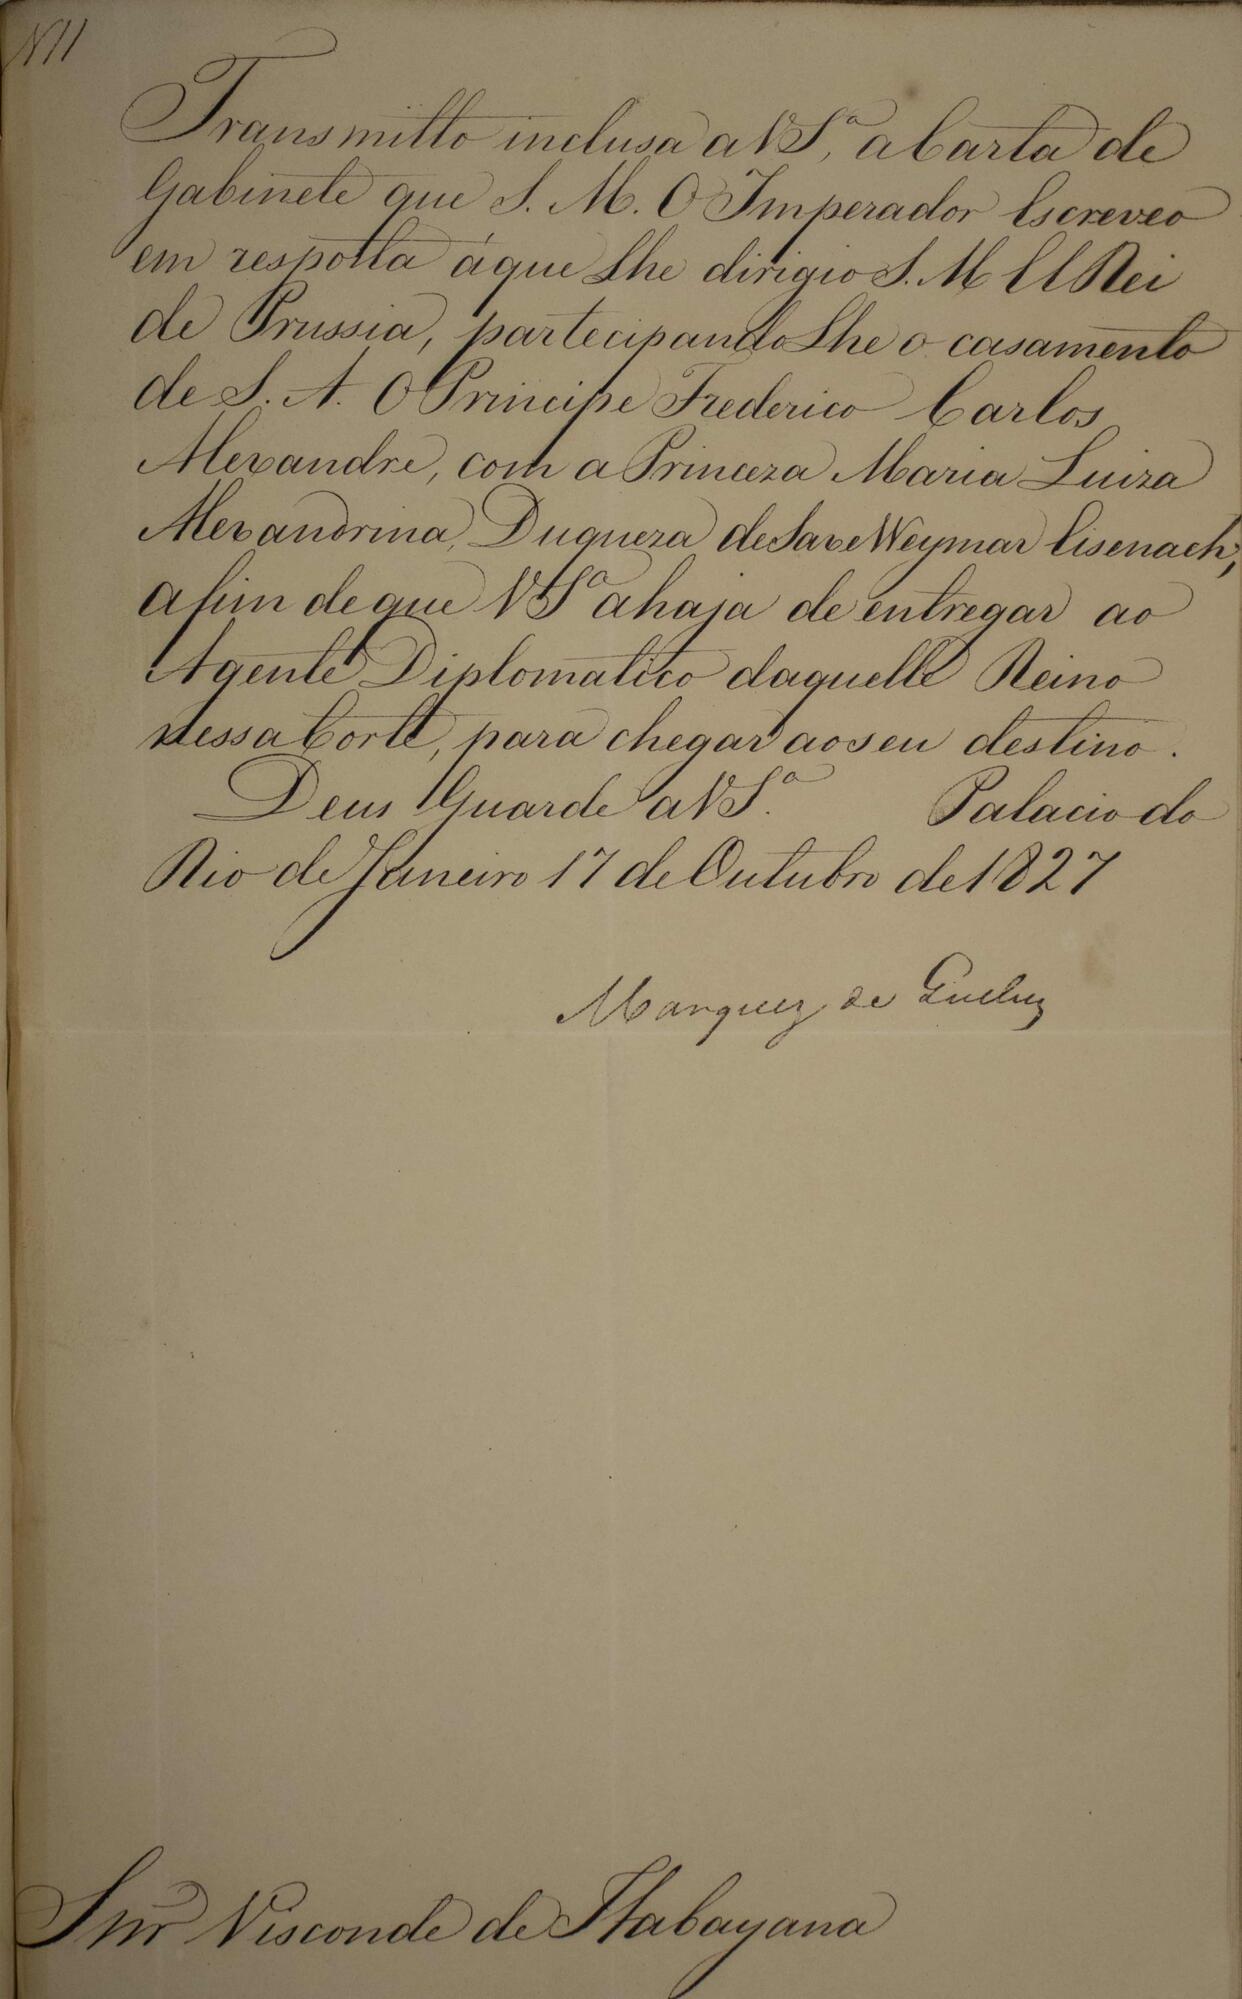 N11
Transmitto inclusa a V S.ª a Carta de
Gabinete que S. M. O Imperador Escreveo
em resposta áque Lhe dirigio S. M ElRei
de Prussia, partecipandoLhe o casamento
de S. A. O Principe Frederico Carlos
Alexandre, com a Princeza Maria Luiza
Alexandrina, Duqueza de Saxe Weymar Eisenach,
afim de que V Sª a haja de entregar ao
Agente Diplomatico daquelle Reino
nessa Corte, para chegar ao seu destino.
Deus Guarde a V S.ª Palacio do
Rio de Janeiro 17 de Outubro de 1827
Marquez de Queluz
Snr Visconde de Itabayana